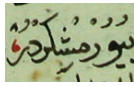 بيورمشلردر